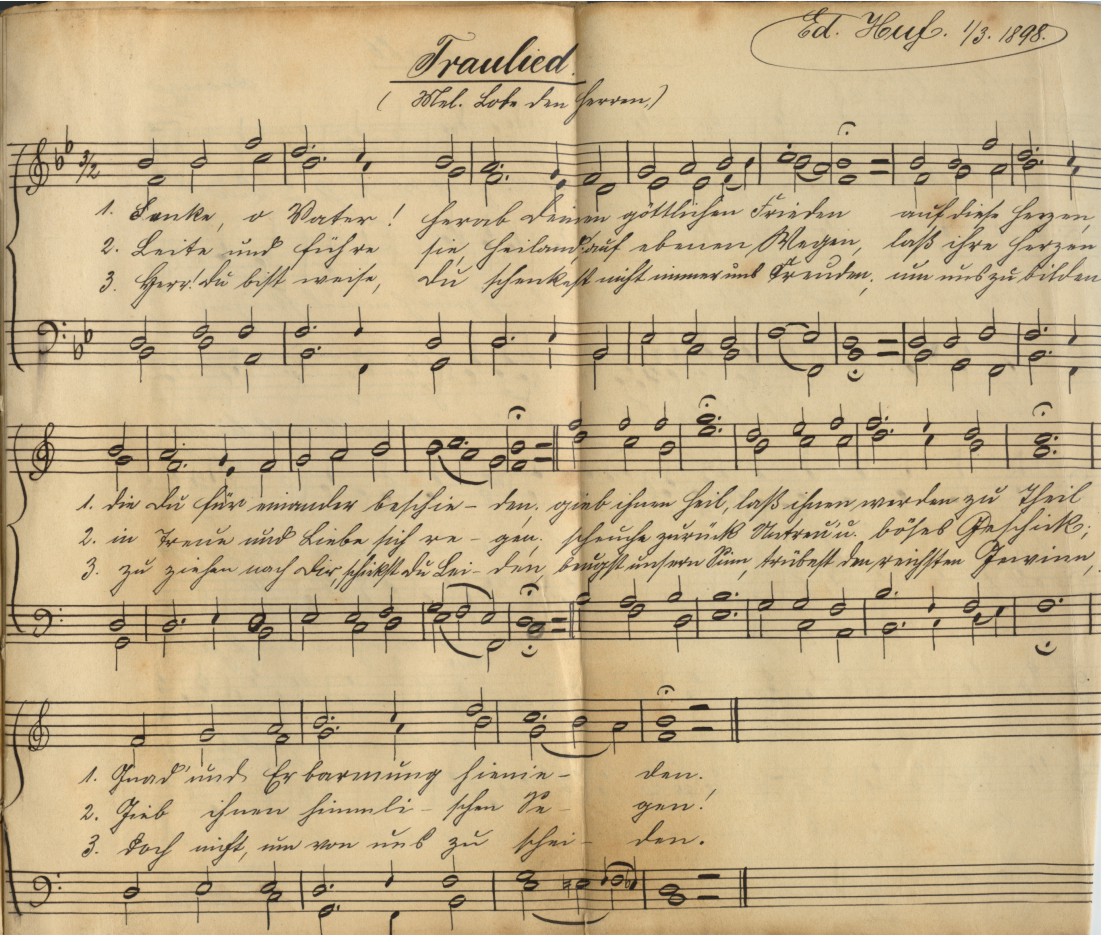 Ed. Huf. 1/3. 1898.
Traulied.
(Mel. Lobe den Herren,)
3/2
1. Senke, o Vater! herab deinen göttlichen Frieden auf diese Herzen,
2. Leite und führe sie, Heiland, auf ebenen Wegen, laß ihre Herzen
3. Herr! Du bist weise, Du schenkest nicht immer uns Freuden; um uns zu bilden
1. die du für einander beschie- den; gieb ihnen Heil, laß ihnen werden zu Theil
2. in Treue und Liebe sich re- gen; scheuche zurück Untreu' u. böses Geschick;
3. zu ziehen nach dir, schickst du Lei- den, beugst unsern Sinn, trübest den reichsten Gewinn,
1. Gnad' und Erbarmung hienie- den.
2. Gieb ihnen himmli- schen Se- gen!
3. Doch nicht, um von uns zu schei- den.